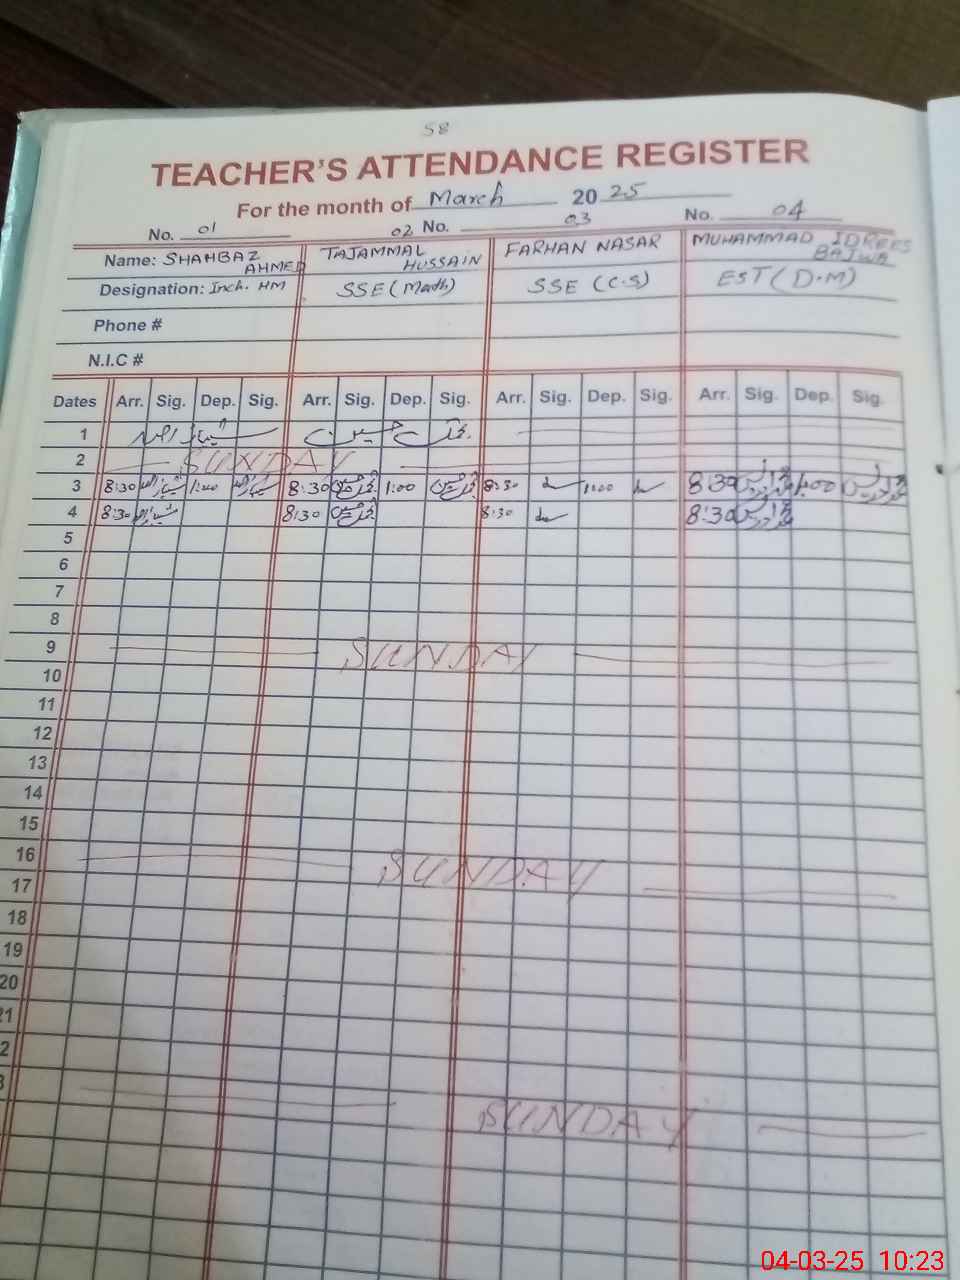 58
TEACHER'S ATTENDANCE REGISTER
For the month of March 2025
No. 01 02 No. 03 No. 04
Name: SHAHBAZ AHMED TAJAMMAL HUSSAIN FARHAN NASAR MUHAMMAD IDREES BAJWA
Designation: Inch. HM SSE (Math) SSE (C.S) EST (D.M)
Phone #
N.I.C #
Dates Arr. Sig. Dep. Sig. Arr. Sig. Dep. Sig. Arr. Sig. Dep. Sig. Arr. Sig. Dep. Sig.
1 شہباز احمد تجمل حسین
2 SUNDAY
3 8:30 شہباز احمد 1:00 شہباز احمد 8:30 تجمل حسین 1:00 تجمل حسین 8:30 1:00 8:30 محمد ادریس 1:00 محمد ادریس
4 8:30 شہباز احمد 8:30 تجمل حسین 8:30 8:30 محمد ادریس
5
6
7
8
9 SUNDAY
10
11
12
13
14
15
16 SUNDAY
17
18
19
20
21
2
3 SUNDAY
04-03-25 10:23